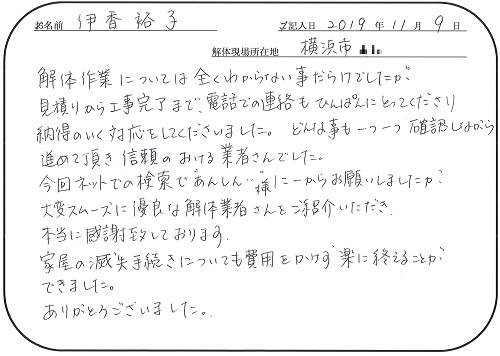 お名前 伊香 裕子 ご記入日 2019年 11月 9日
解体現場所在地 横浜市
解体作業については全くわからない事だらけでしたが、
見積りから工事完了まで、電話での連絡もひんぱんにとってくださり
納得のいく対応をしてくださいました。 どんな事も一つ一つ確認しながら
進めて頂き信頼のおける業者さんでした。
今回ネットでの検索で"あんしん…"様に一からお願いしましたが、
大変スムーズに優良な解体業者さんをご紹介いただき、
本当に感謝致しております。
家屋の滅失手続きについても費用をかけず楽に終えることが
できました。
ありがとうございました。